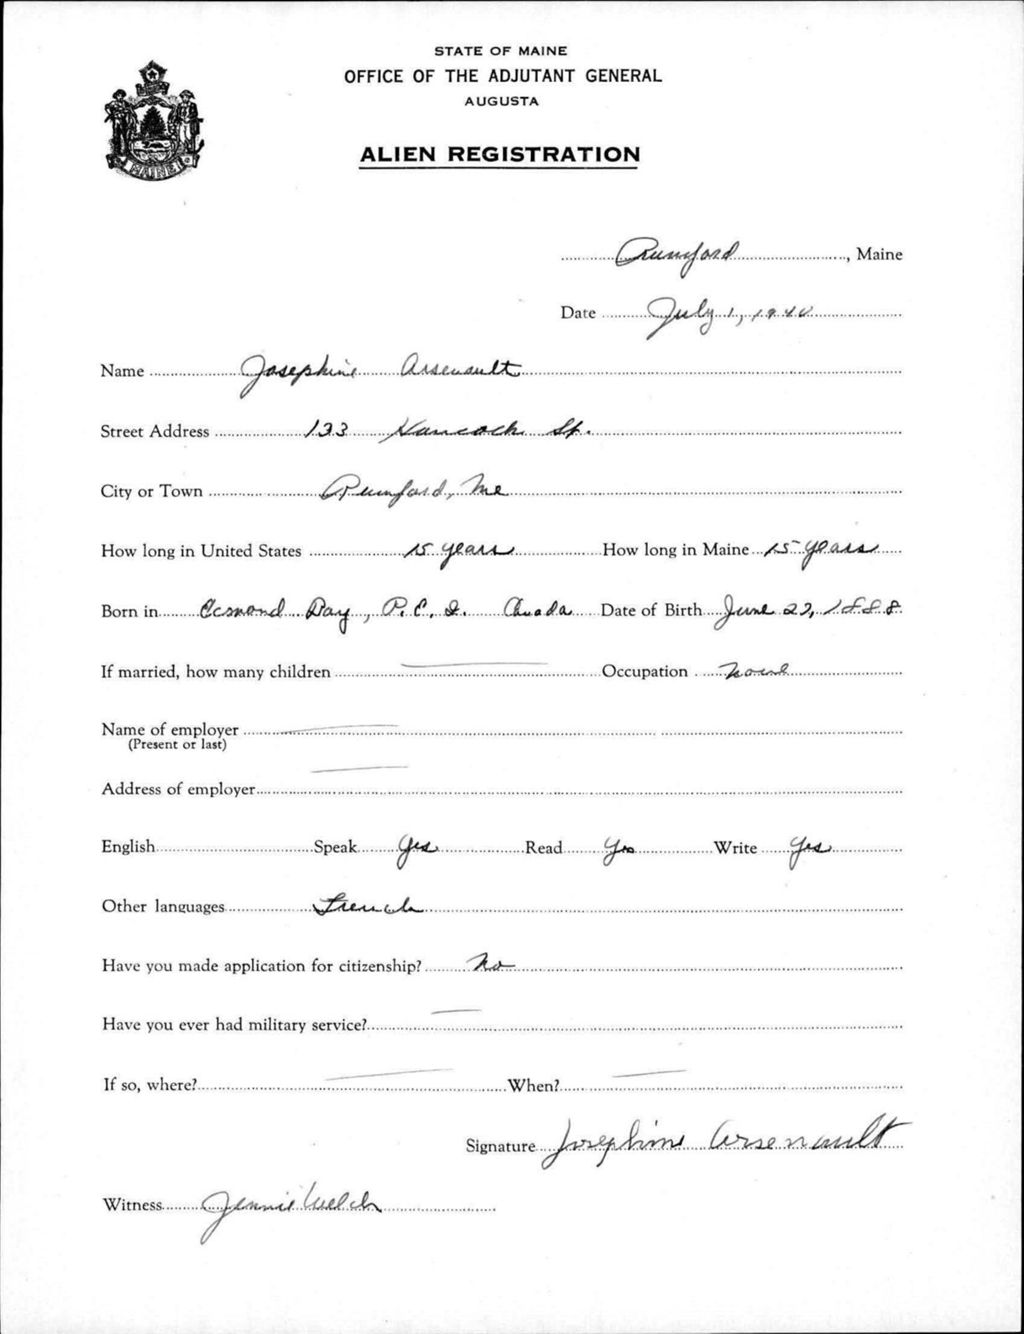 STATE OF MAINE
OFFICE OF THE ADJUTANT GENERAL
AUGUSTA
ALIEN REGISTRATION
MAINE
Rumford, Maine
Date July 1, 1940
Name Josephine Arsenault
Street Address 133 Hancock St.
City or Town Rumford, Me
How long in United States 15 years How long in Maine 15 years
Born in Bay, P. E. I. Canada Date of Birth June 27, 1888
If married, how many children — Occupation None
Name of employer —
(Present or last)
Address of employer —
English Speak Yes Read Yes Write Yes
Other languages French
Have you made application for citizenship? No
Have you ever had military service? —
If so, where? — When? —
Signature Josephine Arsenault
Witness Jennie Welch